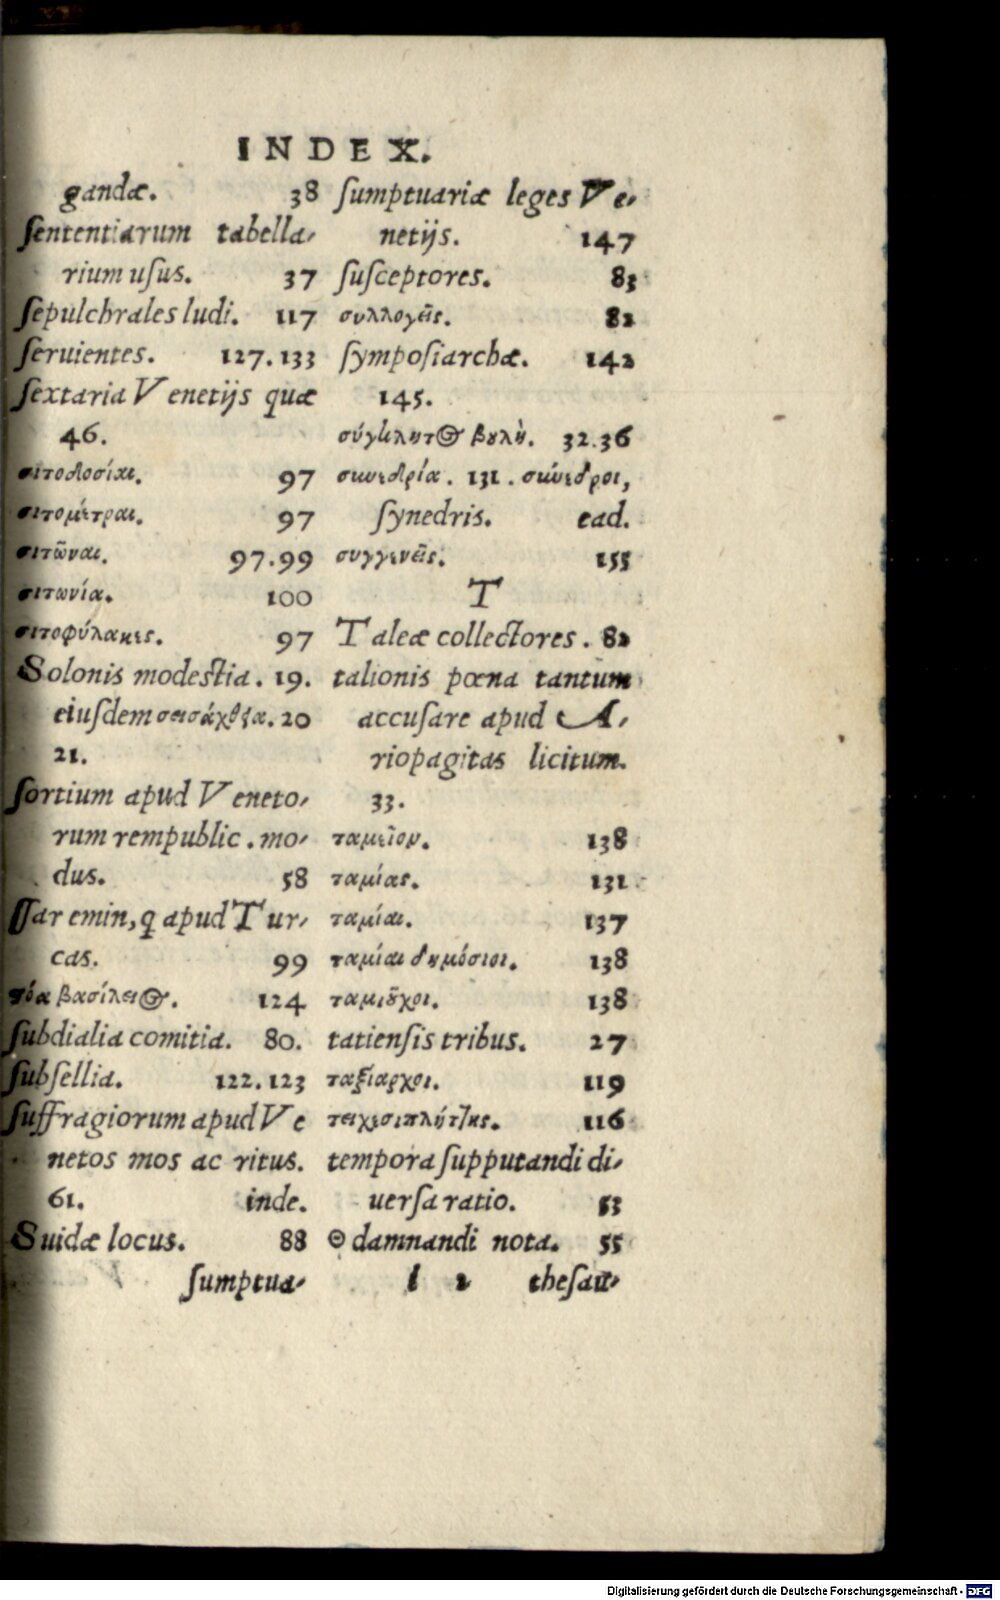 INDEX.
gandæ. 38
sententiarum tabella-
rium usus. 37
sepulchrales ludi. 117
seruientes. 127.133
sextaria Venetijs quæ
46.
σιτοδοσίαι. 97
σιτομέτραι. 97
σιτῶναι. 97.99
σιτωνία. 100
σιτοφύλακες. 97
Solonis modestia. 19.
eiusdem σεισάχθεια. 20
21.
sortium apud Veneto-
rum rempublic. mo-
dus. 58
emin, q apud Tur-
cas. 99
βασίλειος. 124
subdialia comitia. 80.
subsellia. 122.123
suffragiorum apud Ve
netos mos ac ritus.
61. inde.
Suidæ locus. 88
sumptua-
sumptuariæ leges Ve-
netijs. 147
susceptores. 83
συλλογεῖς. 82
symposiarchæ. 142
145.
σύγκλητος βουλή. 32.36
συνεδρία. 131. σύνεδροι,
synedris. ead.
συγγενεῖς. 155
T
Taleæ collectores. 82
talionis pœna tantum
accusare apud A-
riopagitas licitum.
33.
ταμεῖον. 138
ταμίας. 131
ταμίαι. 137
ταμίαι δημόσιοι. 138
ταμιοῦχοι. 138
tatiensis tribus. 27
ταξίαρχοι. 119
τειχεσιπλήτης. 116
tempora supputandi di-
uersa ratio. 53
Θ damnandi nota. 55
l 2 thesau-
Digitalisierung gefördert durch die Deutsche Forschungsgemeinschaft - DFG